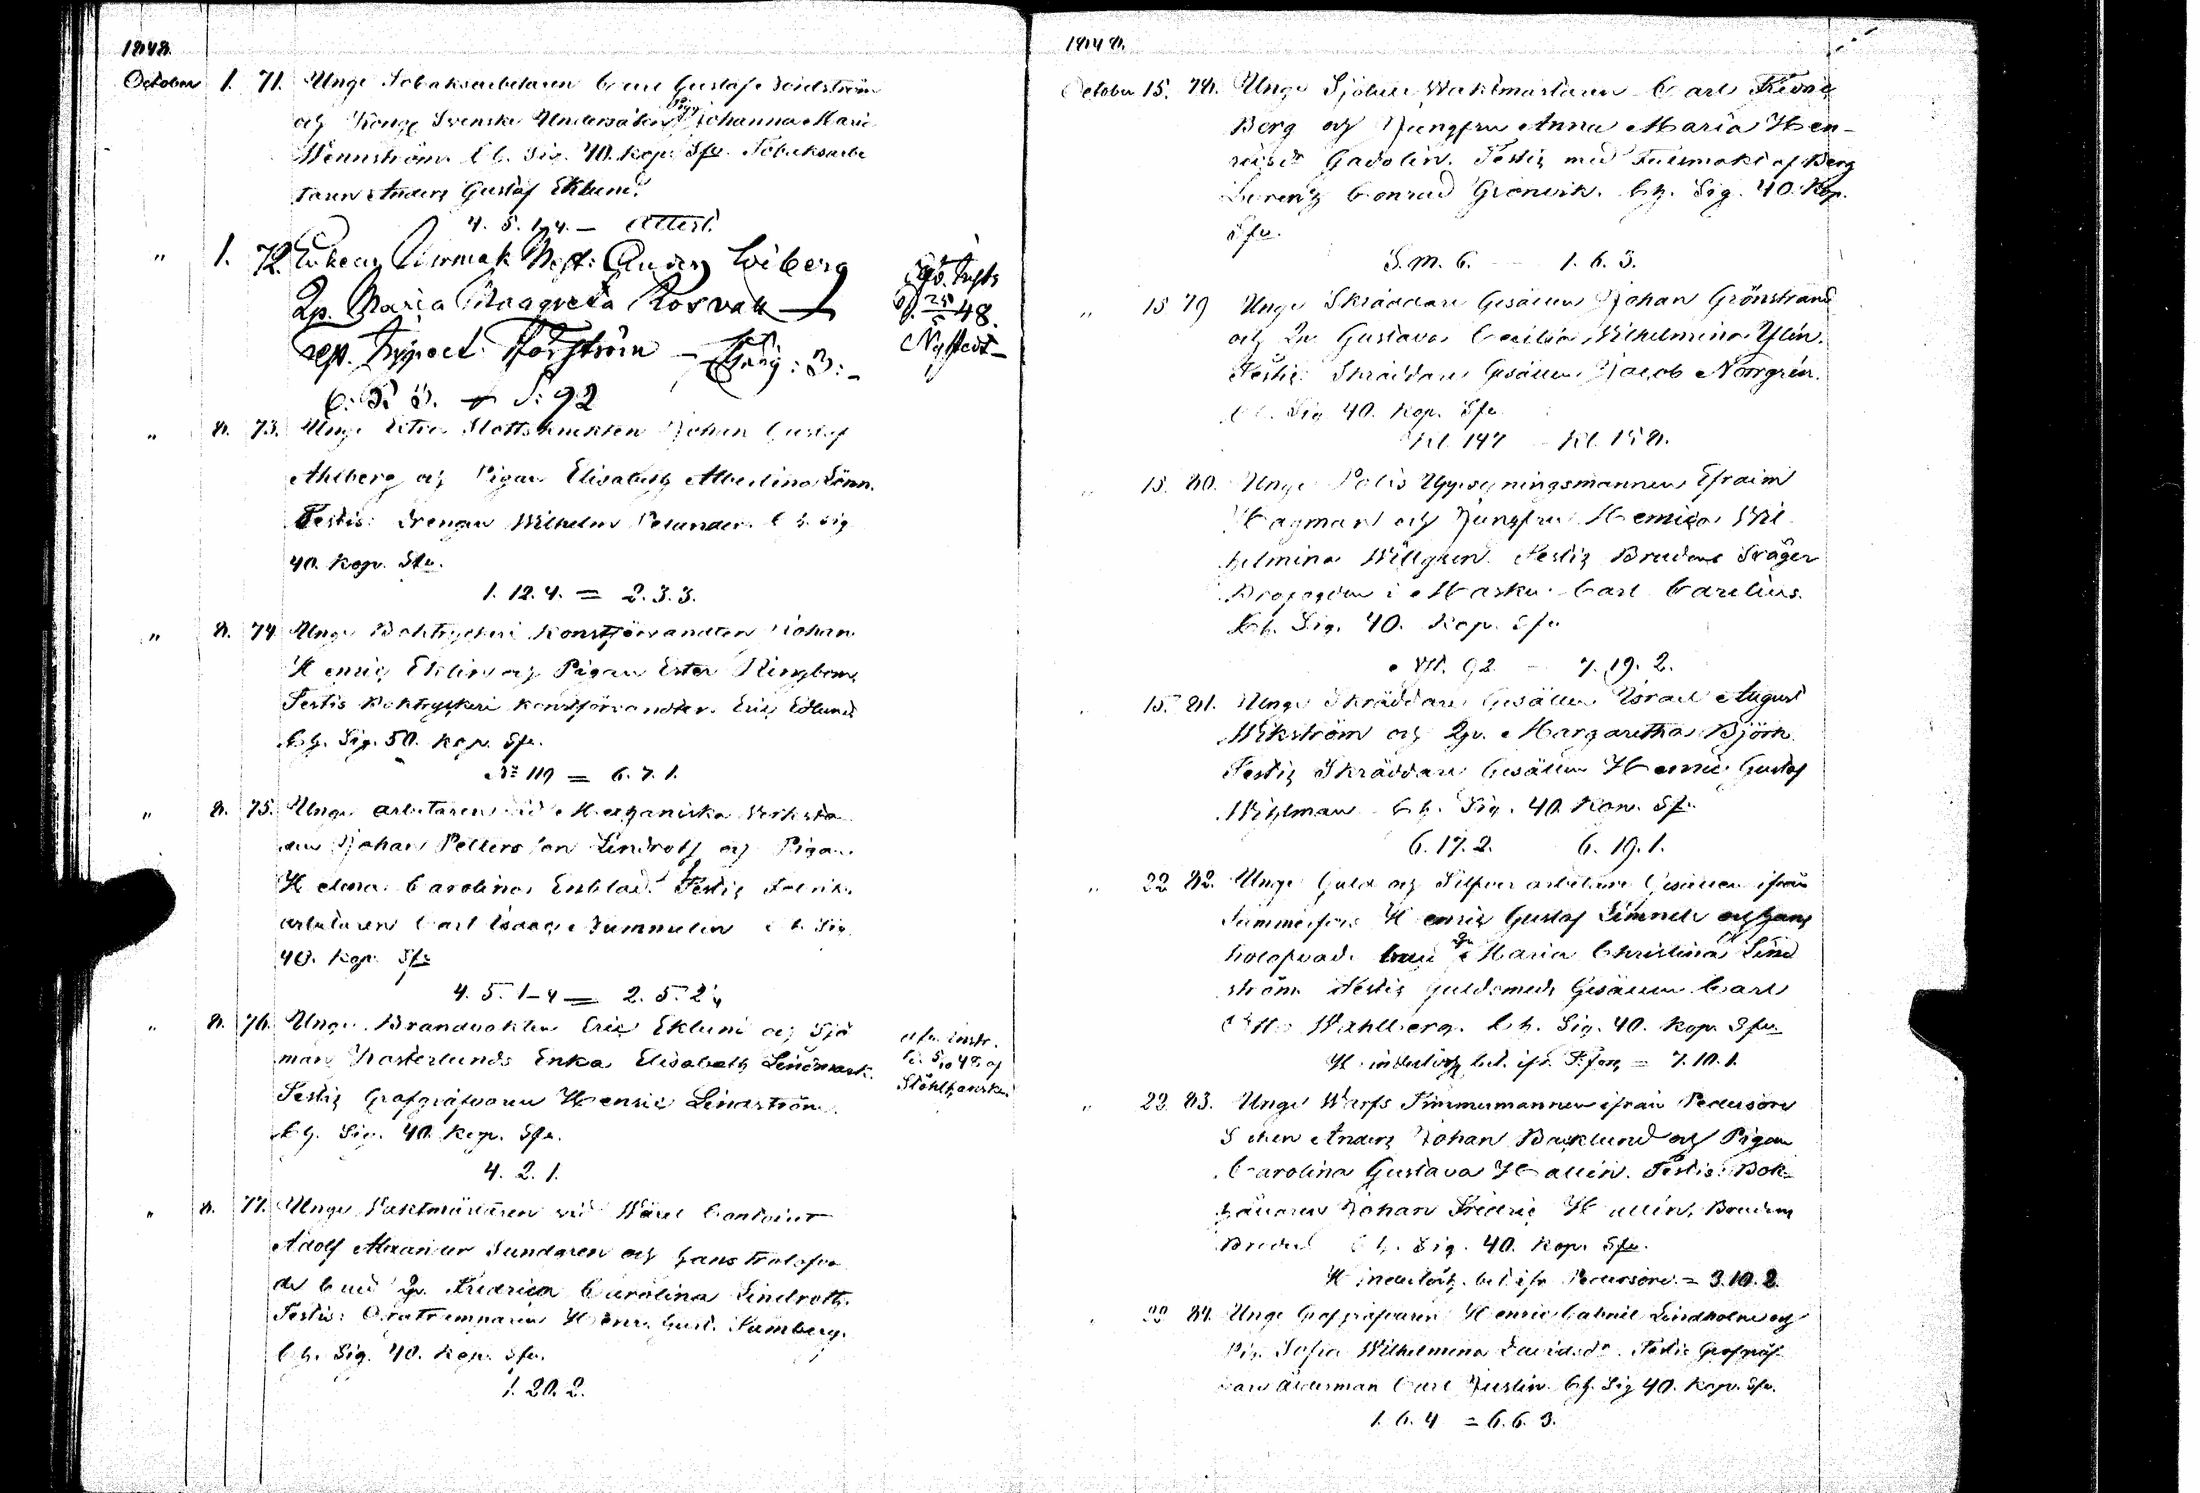 1848.
October 1. 71. Unge Tobaksarbetaren Carl Gustaf Nordström
och Kongl Svenska Undersåten Pig. Johanna Maria
Wennström Ch. Sig. 40. kop. Sfr. Tobaksarbe
taren Anders Gustaf Eklund.
4. 5. 1.4. — Attest.
" 1. 72. Enkem. Timmerm. Anders Löberg
Qp. Maria Margreta Rosvall
Afs. Instr.
25 48.
Nystedt
6. 5. 3. S: 92
" 8. 73. Unge Extra Slottsknekten Johan Gustaf
Ahlberg och Pigan Elisabeth Albertina Lönn.
Testis: Drengen Wilhelm Pelander. Ch. Sig
40. kop. Sfr.
1. 12. 4. = 2. 3. 3.
" 8. 74. Unge Boktryckeri Konstförvandten Johan
Henric Eklin och Pigan Ester Ringbom,
Testis Boktryckeri konstförvandten Eric Edlund
Ch. Sig. 50. kop. Sfr.
No 119 = 6. 7. 1.
" 8. 75. Unge arbetaren vid Mechaniska Verksta
den Johan Pettersson Lindroth och Pigan
Helena Carolina Enblad. Testis Fabriks
arbetaren Carl Isaac Nummelin Ch. Sig.
40. kop. Sfr
4. 5. 1-4 = 2. 5. 2.
" 8. 76. Unge Brandvakten Eric Eklund och Sjö
man Westerlunds Enka Elisabeth Lindmark.
Testis Grofgräfvaren Henric Lindström.
Ch. Sig. 40. kop. Sfr.
afv. instr.
48 af
Stålhanske
4. 2. 1.
" 8. 77. Unge Vaktmästaren vid
Adolf Alexander Sundgren och hans trolofva
de brud Qp. Fredrica Carolina Lindroth.
Testis: Henr. Gust. Tamberg.
Ch. Sig. 40. kop. Sfr.
1. 20. 2.
1848.
October 15. 78. Unge Sjötull Waktmästaren Carl Fredric
Berg och Jungfru Anna Maria Hen-
ricsdr Gadolin. Testis med Tullmakt af Berg
Lorentz Conrad Grönvik. Ch. Sig. 40. Kop.
Sfr.
S. M. 6. — 1. 6. 3.
" 15 79 Unge Skräddare Gesällen Johan Grönstrand
och Qp. Gustava Cecilia Wilhelmina Ylén.
Testis: Skräddare Gesällen Jacob Norrgrén.
Ch. Sig 40. kop. Sfr.
Kl. 147 — Kl. 158.
" 15. 80. Unge Polis Uppsyningsmannen Efraim
Hagman och Jungfru Henrica Wil
helmina Willgren. Testis Brudens Svåger
i Masku Carl Carelius.
Ch. Sig. 40. kop. Sfr
92 — 7. 19. 2.
15. 81. Unge Skräddare Gesällen Israel August
Wikström och Qp. Margaretha Björk
Testis Skräddare Gesällen Henric Gustaf
Wihlman Ch. Sig. 40. kop. Sfr.
6. 17. 2. 6. 19. 1.
" 22 82. Unge Guld och Silfver arbetare Gesällen ifrån
Tammerfors Henric Gustaf Limnell och hans
trolofvade brud Qp Maria Christina Lind
ström Testis guldsmeds Gesällen Carl
Otto Wahlberg. Ch. Sig. 40. kop. Sfr.
H. inderlöshets bet. ifr. T:fors = 7. 10. 1.
" 22 83. Unge Warfs Timmermannen ifrån Pedersöre
Socken Anders Johan Backlund och Pigan
Carolina Gustava Hallin. Testis: Bok-
hållaren Johan Fredric Hallin, Brudens
Broder Ch. Sig. 40. kop. Sfr.
Hinderlösh. bet ifr. Pedersöre = 3. 10. 2.
22 84. Unge Grofgräfvaren Henric Gabriel Lindholm och
Pig. Sofia Wilhelmina Davidsdr. Testis Grofgräf
vare ålderman Carl Justin Ch. Sig 40. kop. Sfr.
1. 6. 4 = 6. 6. 3.